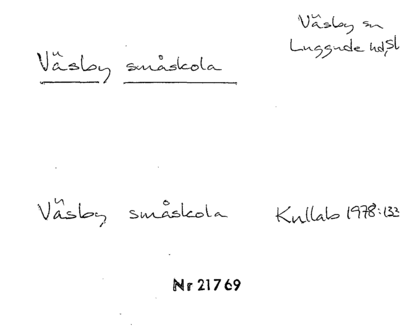 Väsby sn
Luggude hd, Sk
Väsby småskola
Väsby småskola Kullab 1978:133
Nr 21769